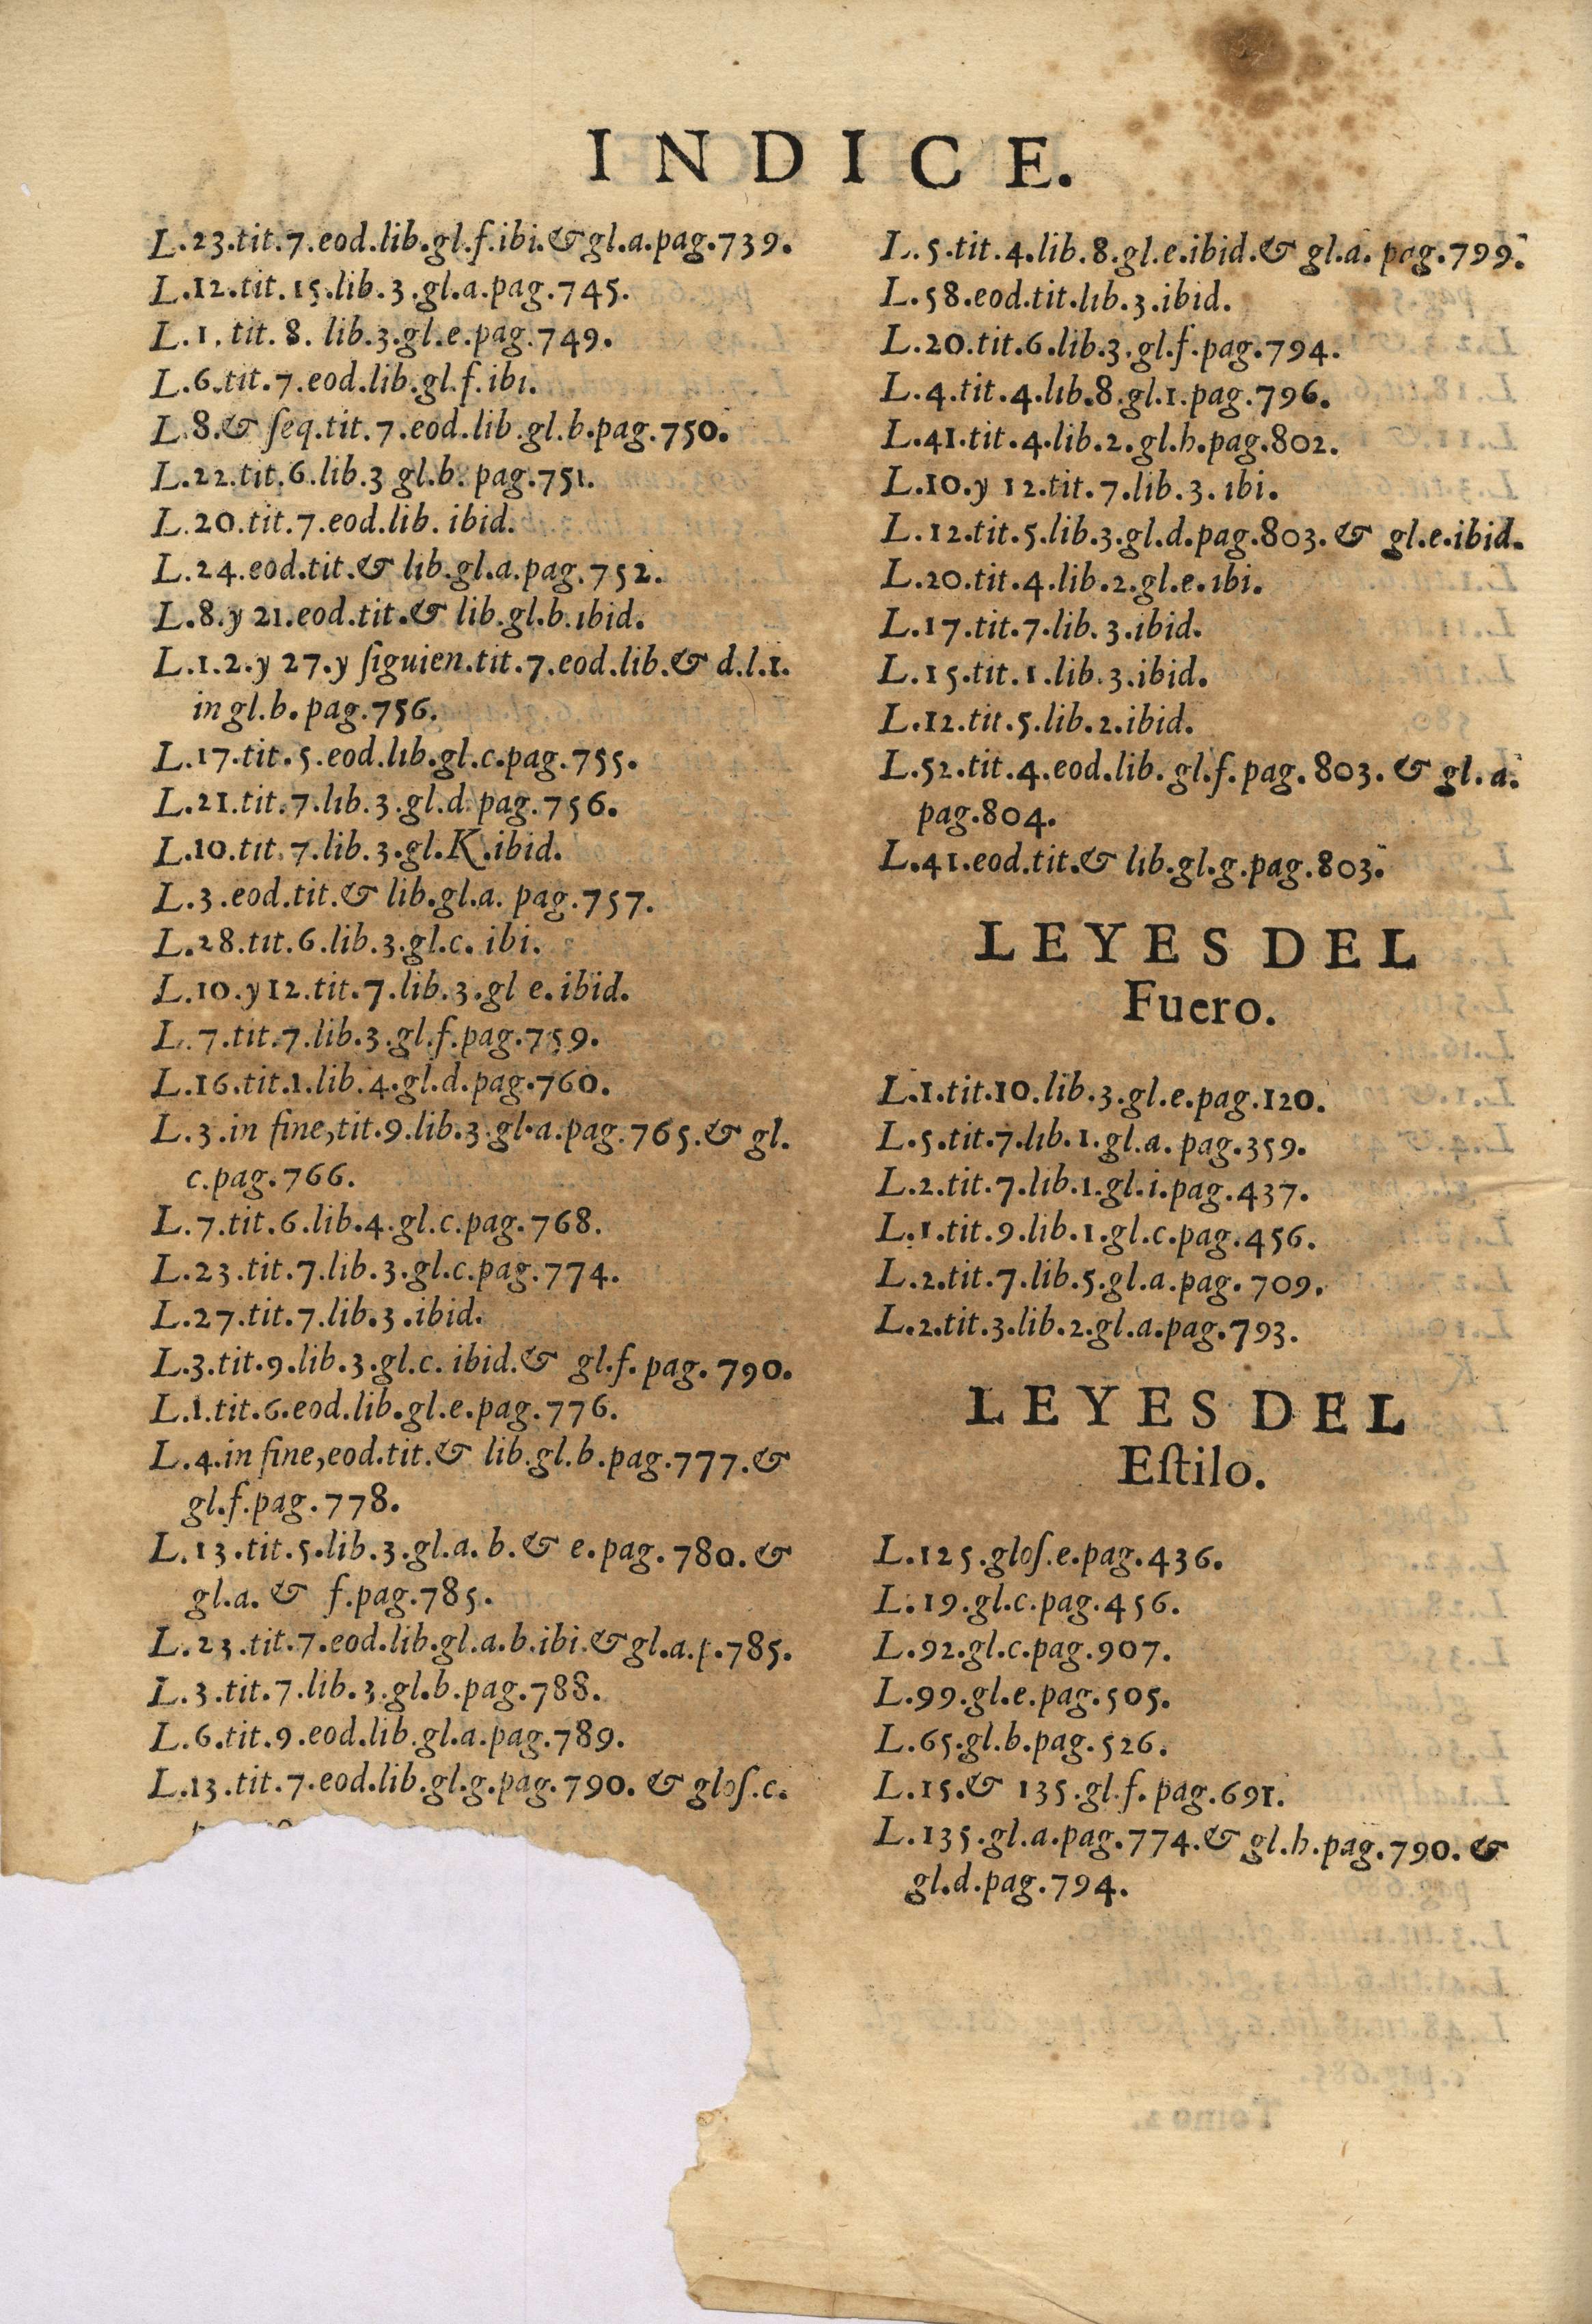 INDICE.
L.23.tit.7.eod.lib.gl.f.ibi.& gl.a.pag.739.
L.12.tit.15.lib.3.gl.a.pag.745.
L.1.tit.8.lib.3.gl.e.pag.749.
L.6.tit.7.eod.lib.gl.f.ibi.
L.8.& ſeq.tit.7.eod.lib.gl.b.pag.750.
L.22.tit.6.lib.3 gl.b.pag.751.
L.20.tit.7.eod.lib.ibid.
L.24.eod.tit.& lib.gl.a.pag.752.
L.8.y 21.eod.tit.& lib.gl.b.ibid.
L.1.2.y 27.y ſiguien.tit.7.eod.lib.& d.l.1.
in gl.b.pag.756.
L.17.tit.5.eod.lib.gl.c.pag.755.
L.21.tit.7.lib.3.gl.d.pag.756.
L.10.tit.7.lib.3.gl.K.ibid.
L.3.eod.tit.& lib.gl.a.pag.757.
L.28.tit.6.lib.3.gl.c.ibi.
L.10.y 12.tit.7.lib.3.gl e.ibid.
L.7.tit.7.lib.3.gl.f.pag.759.
L.16.tit.1.lib.4.gl.d.pag.760.
L.3.in fine,tit.9.lib.3.gl.a.pag.765.& gl.
c.pag.766.
L.7.tit.6.lib.4.gl.c.pag.768.
L.23.tit.7.lib.3.gl.c.pag.774.
L.27.tit.7.lib.3.ibid.
L.3.tit.9.lib.3.gl.c.ibid.& gl.f.pag.790.
L.1.tit.6.eod.lib.gl.e.pag.776.
L.4.in fine,eod.tit.& lib.gl.b.pag.777.&
gl.f.pag.778.
L.13.tit.5.lib.3.gl.a.b.& e.pag.780.&
gl.a.& f.pag.785.
L.23.tit.7.eod.lib.gl.a.b.ibi.& gl.a.p.785.
L.3.tit.7.lib.3.gl.b.pag.788.
L.6.tit.9.eod.lib.gl.a.pag.789.
L.13.tit.7.eod.lib.gl.g.pag.790.& gloſ.c.
L.5.tit.4.lib.8.gl.e.ibid.& gl.a.pag.799.
L.58.eod.tit.lib.3.ibid.
L.20.tit.6.lib.3.gl.f.pag.794.
L.4.tit.4.lib.8.gl.1.pag.796.
L.41.tit.4.lib.2.gl.h.pag.802.
L.10.y 12.tit.7.lib.3.ibi.
L.12.tit.5.lib.3.gl.d.pag.803.& gl.e.ibid.
L.20.tit.4.lib.2.gl.e.ibi.
L.17.tit.7.lib.3.ibid.
L.15.tit.1.lib.3.ibid.
L.12.tit.5.lib.2.ibid.
L.52.tit.4.eod.lib.gl.f.pag.803.& gl.a.
pag.804.
L.41.eod.tit.& lib.gl.g.pag.803.
LEYES DEL
Fuero.
L.1.tit.10.lib.3.gl.e.pag.120.
L.5.tit.7.lib.1.gl.a.pag.359.
L.2.tit.7.lib.1.gl.i.pag.437.
L.1.tit.9.lib.1.gl.c.pag.456.
L.2.tit.7.lib.5.gl.a.pag.709.
L.2.tit.3.lib.2.gl.a.pag.793.
LEYES DEL
Eſtilo.
L.125.gloſ.e.pag.436.
L.19.gl.c.pag.456.
L.92.gl.c.pag.907.
L.99.gl.e.pag.505.
L.65.gl.b.pag.526.
L.15.& 135.gl.f.pag.691.
L.135.gl.a.pag.774.& gl.h.pag.790.&
gl.d.pag.794.